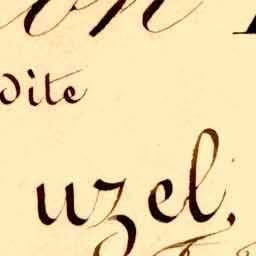 on
dite
uzel.